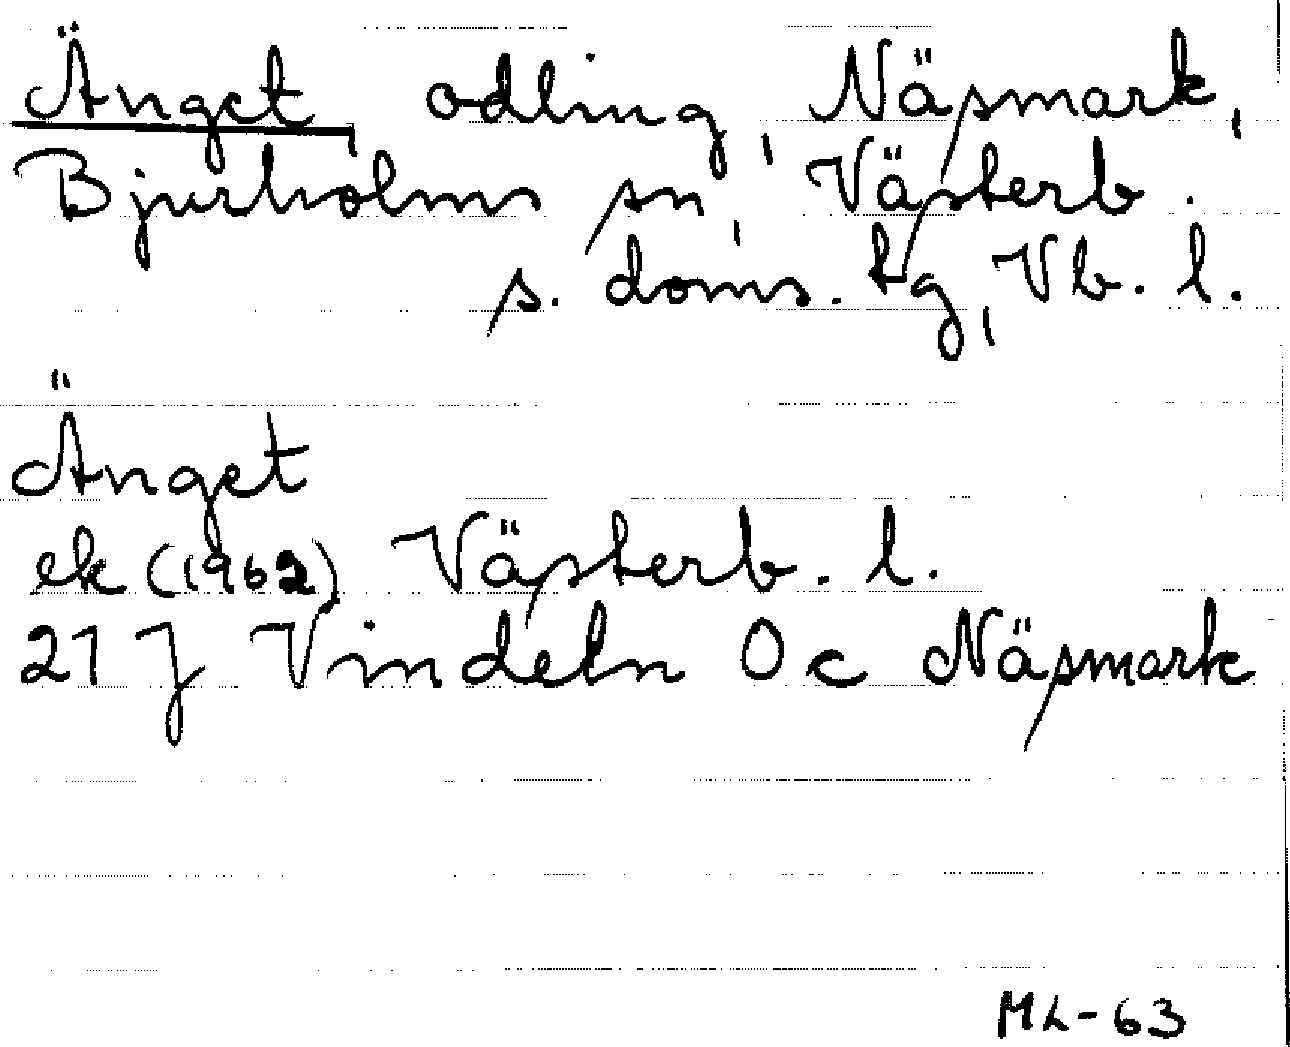 Änget, odling, Näsmark,
Bjurholms sn, Västerb.
s. doms. tg, Vb. l.
Änget
ek (1962) Västerb. l.
21 J Vindeln 0 c Näsmark
ML-63